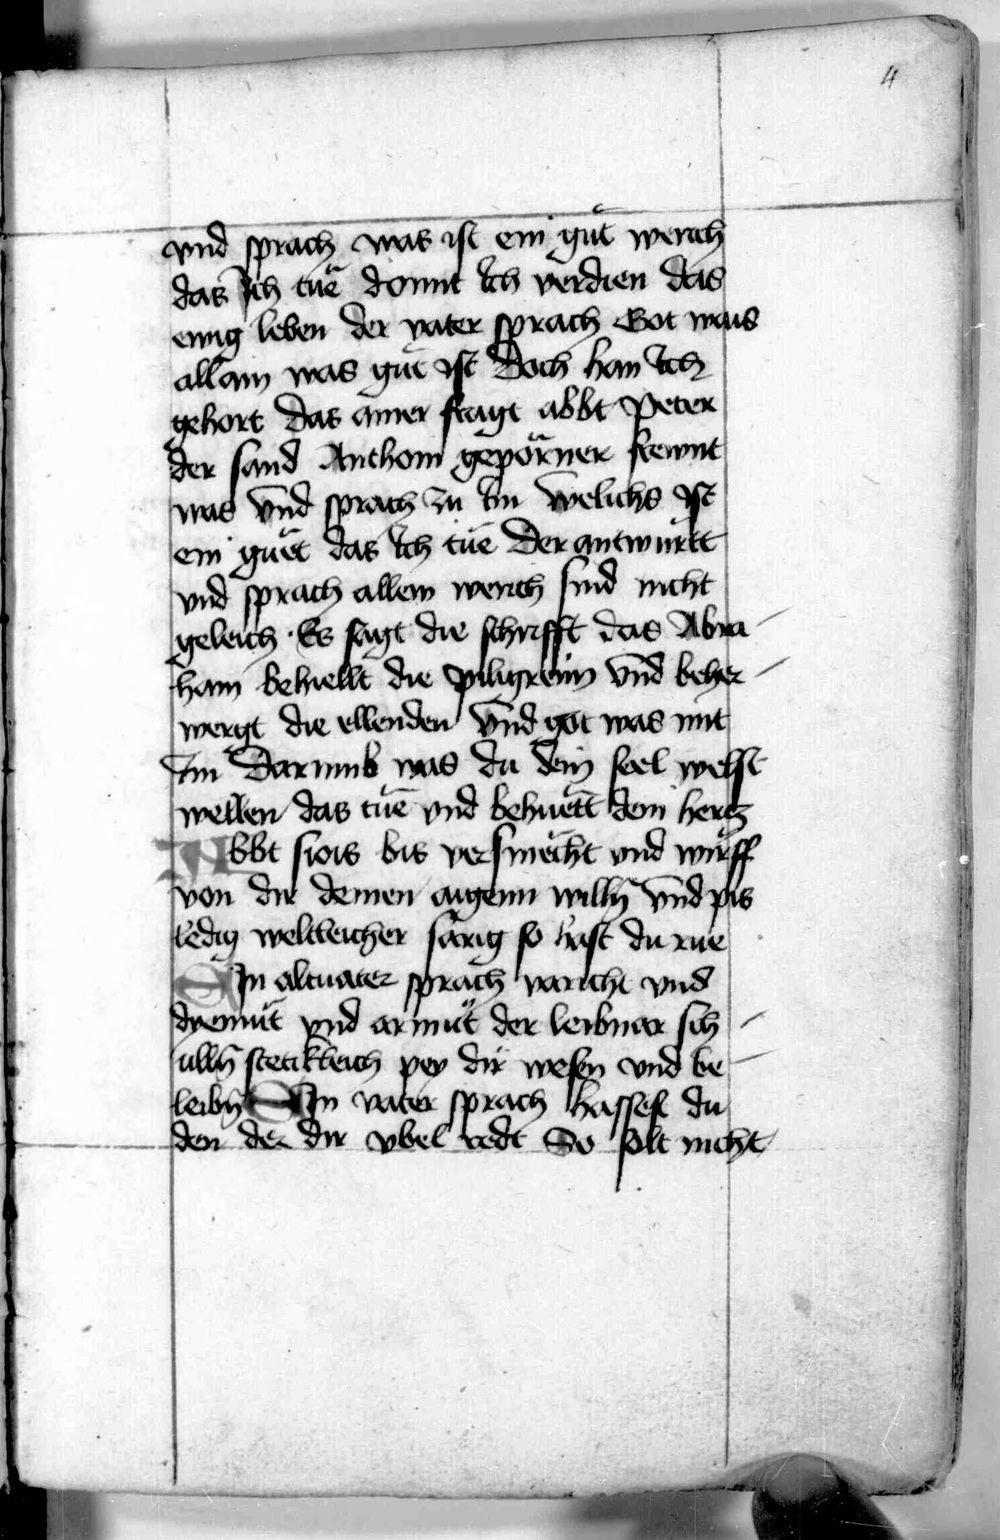 4
vnd sprach was ist ein gůt werch
das Ich tue domit Ich verdien das
ewig leben der vater sprach Got wais
allain was gůt ist Doch han Ich
gehort das ainer fragt abbt Peter
der sand Anthoni gepörner frewnt
was vnd sprach zu Im welichs ist
ein guet das Ich tue Der antwurtt
vnd sprach allew werch sind nicht
geleich · Es sagt die schrifft das Abra-
ham behiellt die piligreim vnd beher-
wergt die ellenden vnd got was mit
Im Darumb was du dein seel welst
wellen das tue vnd behuett dein hertz
Abbt siois bis versmächt vnd würff
von dir deinen aigenn willn̄ vnd pis
ledig weltleicher sarig so hast du rue
Ein altuater sprach varicht vnd
dyemůt vnd armůt der leibnar sich
ulln̄ stetikleich pey dir wesen vnd be-
leibn̄ Ein vater sprach hassest du
den der dir vbel redt So solt nicht